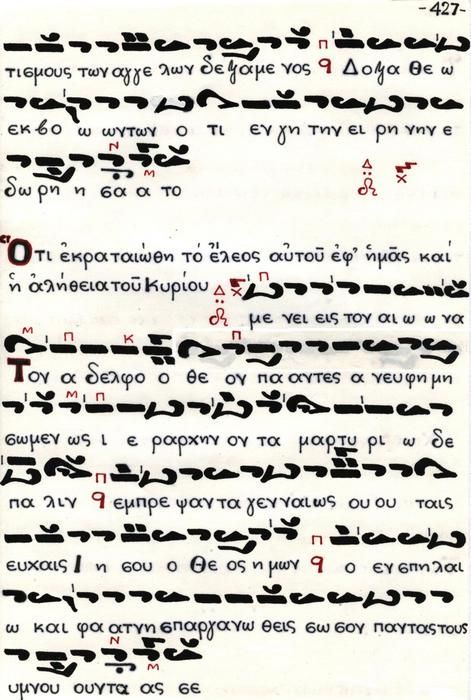 -427-
τισμους των αγγε λων δεξαμε νος Δοξα Θε ω
εκβο ω ωντων ο τι εν γη την ει ρη νην ε
δω ρη η σα α το
Ὅτι ἐκραταιώθη τό ἔλεος αὐτοῦ ἐφ' ἡμᾶς καί
ἡ ἀλήθεια τοῦ Κυρίου
με νει εις τον αι ω ω να
Τον α δελφο ο θε ον πα αντες α νευφη μη
σωμεν ως ι ε ραρχην ον τα μαρτυ ρι ω δε
πα λιν εμπρε ψαντα γενναιως ου ου ταις
ευχαις Ι η σου ο Θε ος η μων ο εν σπηλαι
ω και φα ατνη σπαργανω θεις σω σον παντας τους
υμνου ουντα ας σε